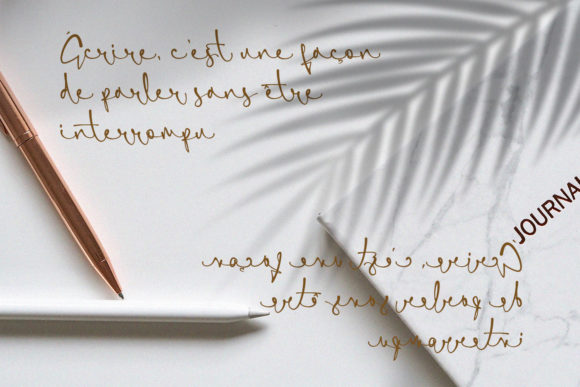 Écrire, c'est une façon
de parler sans être
interrompu
JOURNAL
Écrire, c'est une façon
de parler sans être
interrompu